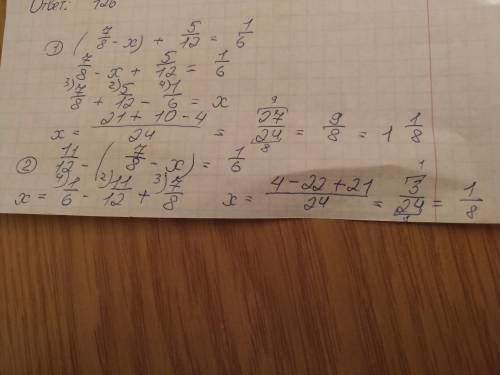 Ответ: 126
① (7/8 - x) + 5/12 = 1/6
7/8 - x + 5/12 = 1/6
3) 7/8 + 2) 5/12 - 4) 1/6 = x
x = (21 + 10 - 4)/24 = 27/24 9 8 = 9/8 = 1 1/8
② 11/12 - (7/8 - x) = 1/6
x = 4) 1/6 - 2) 11/12 + 3) 7/8 x = (4 - 22 + 21)/24 = 3/24 1 8 = 1/8